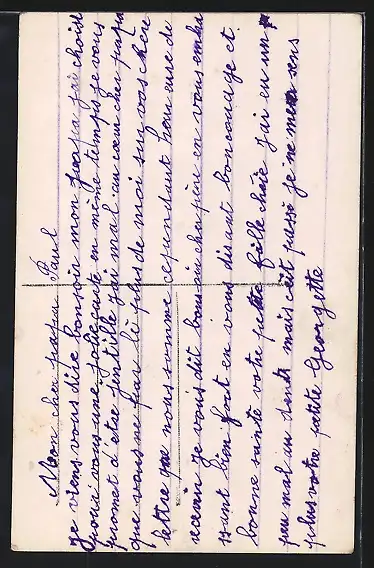 Mon cher papa Paul
Je viens vous dire bonsoir mon papa j'ai choisi
pour vous une jolie carte en même temps je vous
promet d'être gentille j'ai mal au cœur cher papa
que vous ne par li plus de moi sur vos chère
lettre nous somme cependant heureuse de
recevoir je vous dit bonsoir cher papa en vous embra
ssant bien fort en vous disant bon courage et
bonne santé votre petite fille chérie j'ai eu un
peu mal au dents mais c'est passé je ne me sens
plus votre petite Georgette